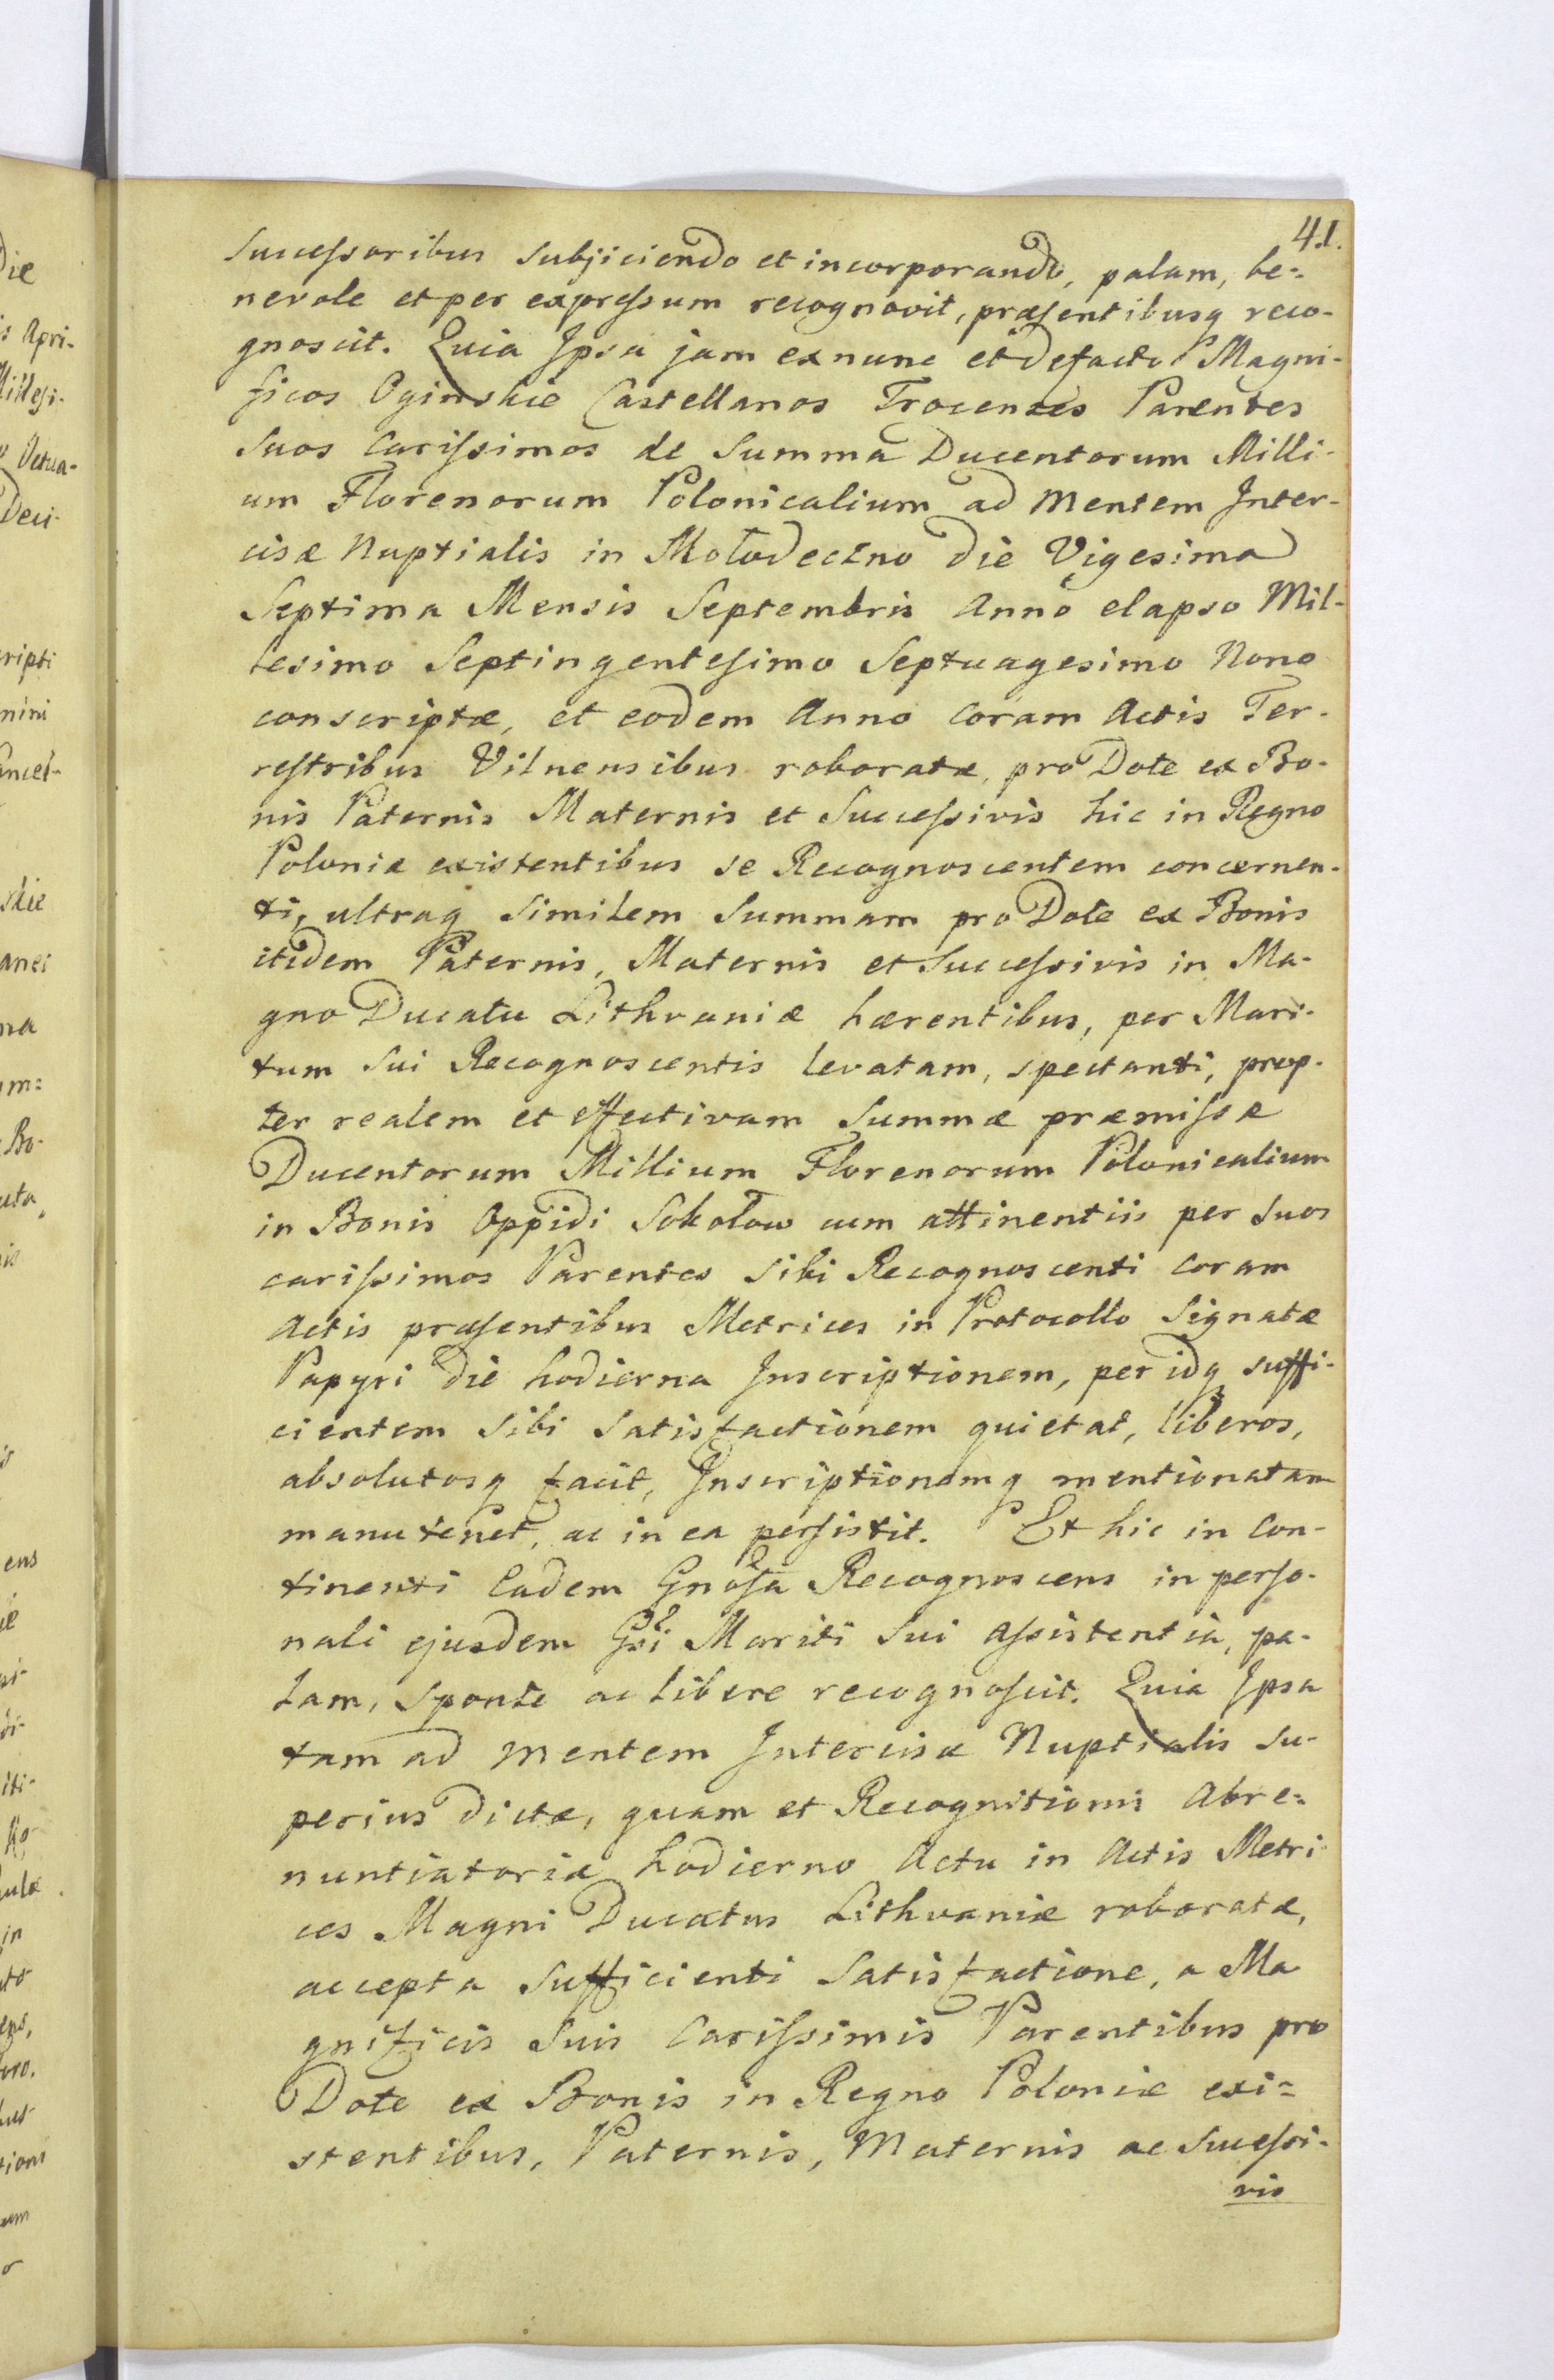 41.
Successoribus Subjiciendo et incorporando, palam, be=
nevole et per expressum recognovit, præsentibusq reco-
gnoscit. Quia Ipsa jam exnunc et defacto Magni-
ficos Oginskie Castellanos Trocenses Parentes
Suos Carissimos de Summa Ducentorum Milli-
um Florenorum Polonicalium ad mentem Inter-
cisæ Nuptialis in Mołodeczno die Vigesima
Septima Mensis Septembris Anno elapso Mil-
lesimo Septingentesimo Septuagesimo Nono
conscriptæ, et eodem Anno Coram Actis Ter-
restribus Vilnensibus roboratæ, pro Dote ex Bo-
nis Paternis Maternis et Successivis hic in Regno
Poloniæ existentibus se Recognoscentem concernen-
ti, ultraq similem Summam pro Dote ex Bonis
itidem Paternis, Maternis et Successivis in Ma-
gno Ducatu Lithvaniæ hærentibus, per Mari-
tum Sui Recognoscentis levatam, spectanti, prop-
ter realem et effectivam Summæ præmissæ
Ducentorum Millium Florenorum Polonicalium
in Bonis Oppidi Sokołow cum attinentiis per Suos
carissimos Parentes Sibi Recognoscenti Coram
Actis præsentibus Metrices in Protocollo Signatæ
Papyri die hodierna Inscriptionem, per idq suffi-
cientem Sibi Satisfactionem quietat, liberos,
absolutosq facit, Inscriptionemq mentionatam
manutenet, ac in ea persistit. Et hic in Con-
tinenti Eadem Gnosa Recognoscens in perso-
nali ejusdem Gsi Mariti Sui Assistentia, pa-
lam, Sponte ac libere recognoscit. Quia Ipsa
tam ad mentem Intercisæ Nuptialis Su-
perius dictæ, quam et Recognitionis Abre=
nuntiatoriæ hodierno Actu in Actis Metri-
ces Magni Ducatus Lithvaniæ roboratæ,
accepta Sufficienti Satisfactione, a Ma
gnificis Suis Carissimis Parentibus pro
Dote ex Bonis in Regno Poloniæ exi=
stentibus, Paternis, Maternis ac Successi-
vis